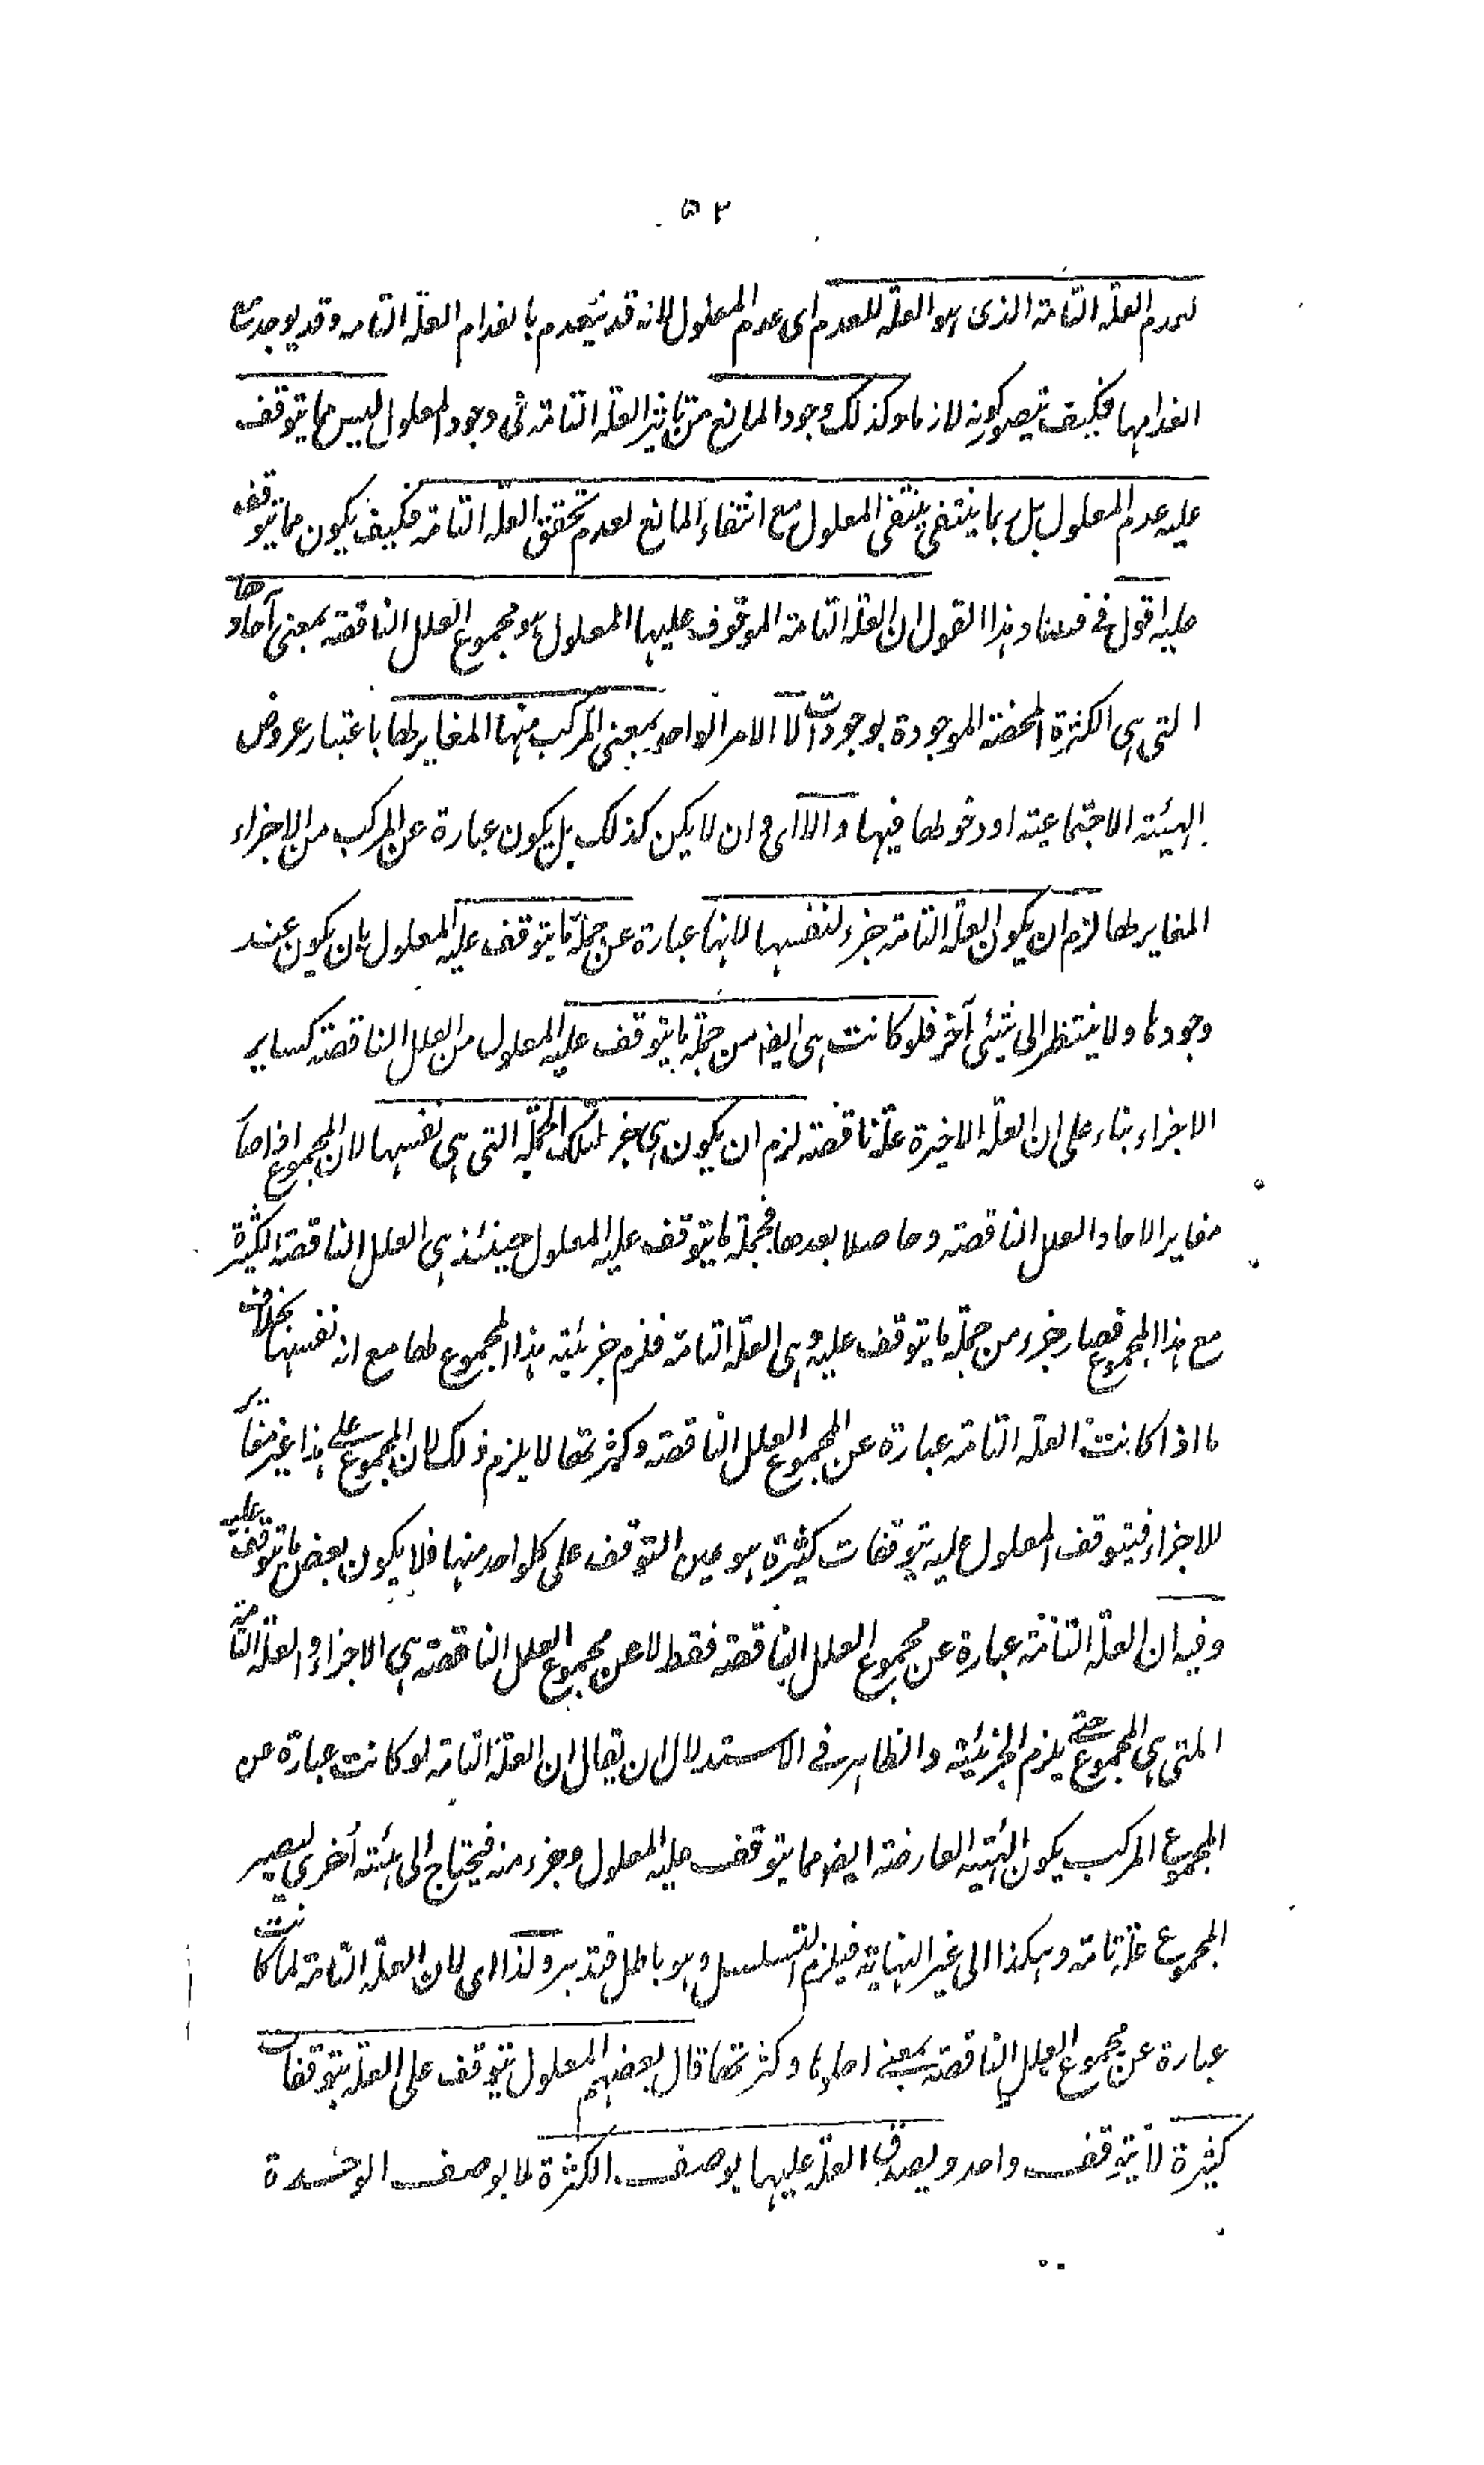 ٥٢
لعدم العلة التامة الذى هو العلة للعدم اى عدم المعلول لانه قد ينعدم بانعدام العلة التامة وقد يوجد مع
انعدامها فكيف يتصور كونه لازما وكذلك وجود المانع من تاثير العلة التامة فى وجود المعلول ليس مما يتوقف
عليه عدم المعلول بل ربما ينتفى ينتفى المعلول مع انتفاء المانع لعدم تحقق العلة التامة فكيف يكون مما يتوقف
عليه اقول فى هذا القول ان العلة التامة الموقوف عليها المعلول هو مجموع العلل الناقصة بمعنى آحادها
التى هى الكثرة المحضة الموجودة بوجودات لا الامر الواحد بمعنى المركب منها المغاير لها باعتبار عروض
الهيئة الاجتماعية او دخولها فيها والا اى وان لا يكن كذلك بل يكون عبارة عن المركب من الاجزاء
المغاير لها لزم ان يكون العلة التامة جزء لنفسها لانها عبارة عن جملة ما يتوقف عليه المعلول بان يكون عند
وجودها ولا ينتظر الى شيئ آخر فلو كانت هى ايضا من جملة ما يتوقف عليه المعلول من العلل الناقصة كساير
الاجزاء بناء على ان العلة الاخيرة علة ناقصة لزم ان يكون هى جزء لتلك الجملة التى هى نفسها لان المجموع اذا كان
مغاير الاحاد العلل الناقصة وحاصلا بعدها فجملة ما يتوقف عليه المعلول حينئذ هى العلل الناقصة الكثيرة
مع هذا المجموع فصار جزء من جملة ما يتوقف عليه وهى العلة التامة فلزم جزئية هذا المجموع لها مع انه نفسها بخلاف
ما اذا كانت العلة التامة عبارة عن المجموع العلل الناقصة وكثرتها لا يلزم ذلك لان المجموع على هذا غير مغاير
للاجزاء فيتوقف المعلول عليه بتوقفات كثيرة هو عين التوقف على كل واحد منها فلا يكون بعض ما يتوقف عليه
وفيه ان العلة التامة عبارة عن مجموع العلل الناقصة فقط لا عن مجموع العلل الناقصة هى الاجزاء والعلة التامة
التى هى المجموع حتى يلزم الجزئية والظاهر فى الاستدلال ان يقال ان العلة التامة لو كانت عبارة عن
المجموع المركب يكون الهيئة العارضة ايضا مما يتوقف عليه المعلول وجزء منه فيحتاج الى هيئة أخرى ليصير
المجموع علة تامة وهكذا الى غير النهاية فيلزم التسلسل وهو باطل فتدبر ولذا اى لان العلة التامة لما كانت
عبارة عن مجموع العلل الناقصة بمعنى احادها وكثرتها قال بعضهم المعلول يتوقف على العلة بتوقفات
كثيرة لا بتوقف واحد ويصدق العلة عليها بوصف الكثرة لا بوصف الوحدة